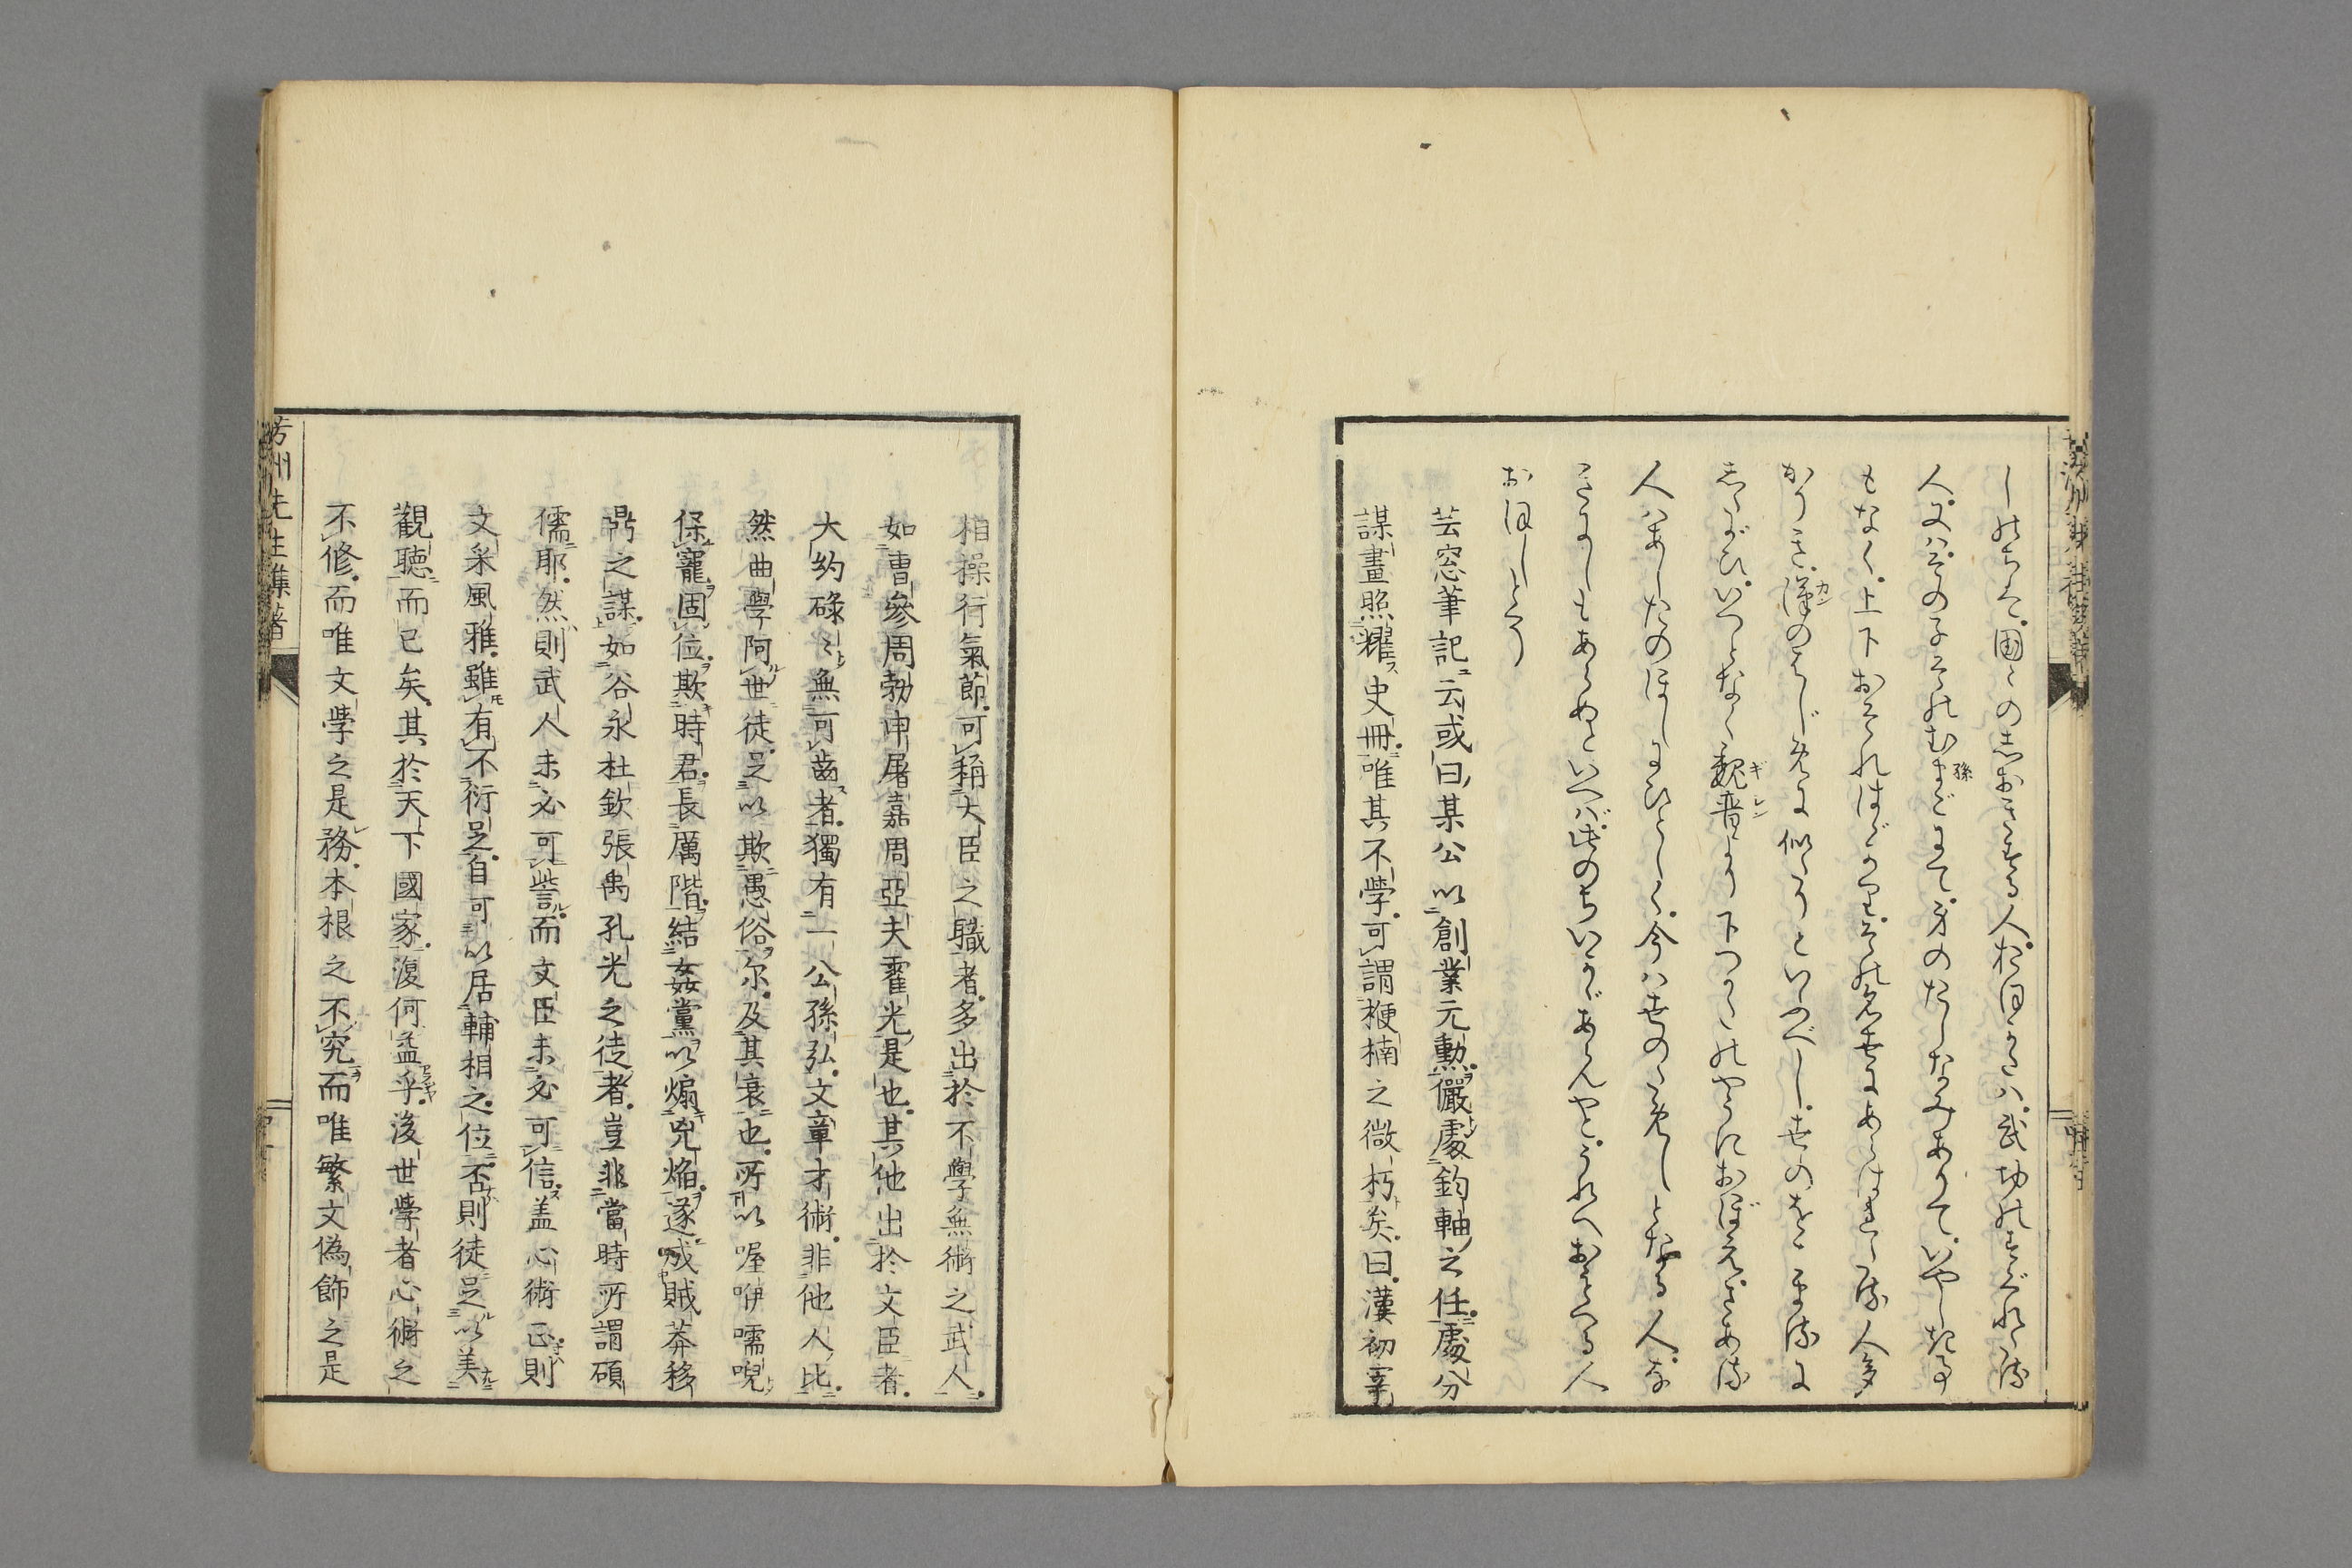 しのちは。国々のあるじする人。おほくは。武功のすぐれたる
人。又はその子それむまごにて。身のたしなみありて。いやしき事
もなく。上下おそれはゞかりて。その名世にあらはれたる人多
かりき。漢のはじめに似たりといふべし。世のをごるに
したがひ。いつとなく魏晋より下つかたのやうにおぼえ。さある
人はあしたのほしにひとしく。今は世のためしとなる人。な
きにしもあらぬといへば。此のちいかゞあらんやと。うれへおもへる人
おほしとぞ
芸窓筆記云。或曰。某公以創業元勳。儼處鈞軸之任。處分
謀畫照耀史冊。唯其不學。可謂梗楠之微朽矣。曰。漢初宰
相操行氣節。可稱大臣之職者。多出於不學無術之武人。
如曹參周勃申屠嘉周亞夫霍光是也。其他出於文臣者。
大約碌々無可齒者。獨有一公孫弘。文章才術。非他人比。
然曲學阿世。徒足以欺愚俗尔。及其衰也。所以喔咿嚅唲
保寵固位。欺時君。長厲階。結姦黨以煽兇焔。遂成賊莽移
鼎之謀。如谷永杜欽張禹孔光之徒者。豈非當時所謂碩
儒耶。然則武人未必可訾。而文臣未必可信。盖心術正則
文采風雅。雖有不衍足。自可以居輔相之位。否則徒足以美
觀聴而已矣。其於天下國家。復何益乎。後世學者心術之
不修。而唯文學之是務。本根之不究。而唯繁文偽飾之是
芳洲先生集著